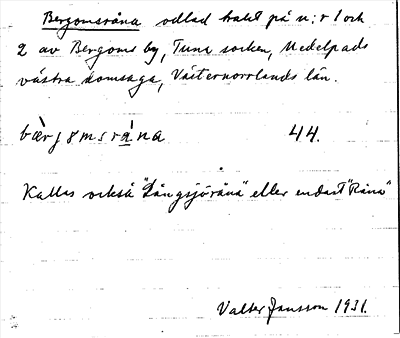 Bergomsråna odlad trakt på n:r 1 och
2 av Bergoms by, Tuna socken, Medelpads
västra domsaga, Västernorrlands län.
bærjomsråna 44.
Kallas också "Långsjöråna" eller endast "Råna"
Valter Jansson 1931.